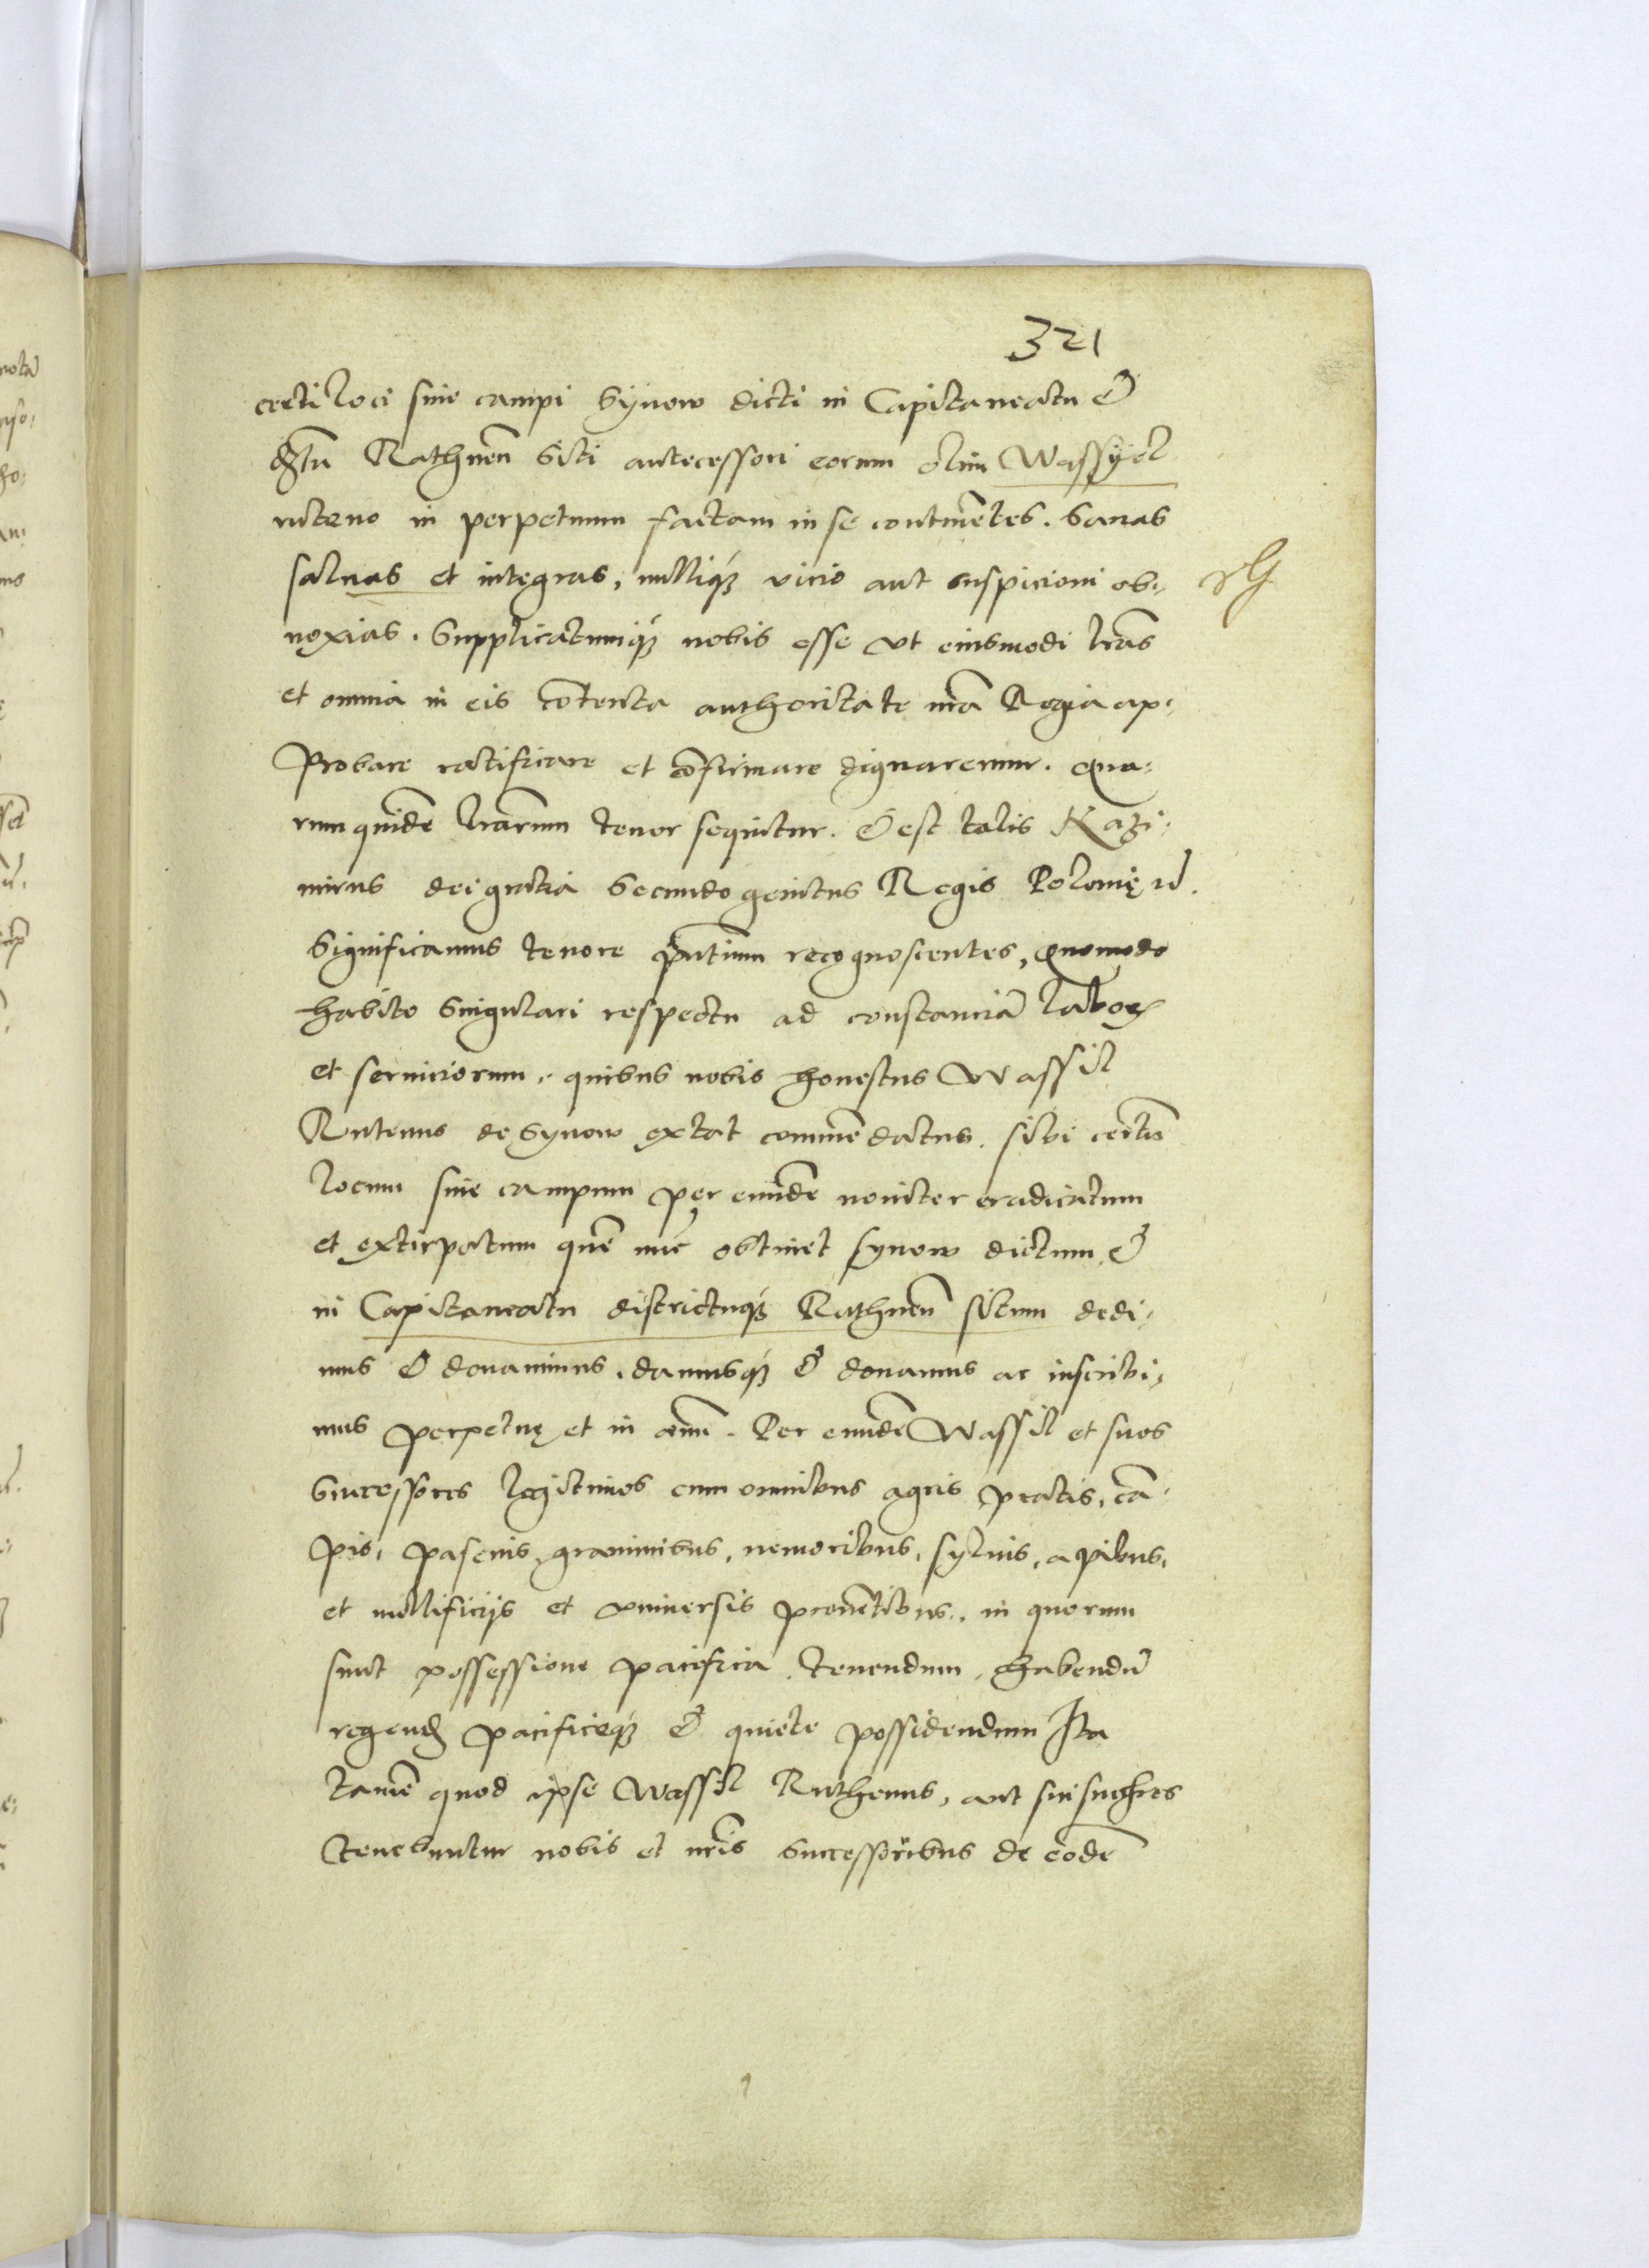 321
certi loci siue campi Synow dicti in Capitaneatu &
Rathnen̄ siti antecessori eorum olim Wassyil
ruteno in perpetuum factam in se continētes. Sanas
saluas et integras, nulliq́ꝫ vicio aut suspicioni ob-
noxias. Supplicatumq́ꝫ nobis esse vt eiusmodi lr̄as
et omnia in eis cōtenta authoritate nr̄a Regia ap-
Probare ratificare et cōfirmare dignaremur. Qua-
rum quidē lr̄arum tenor sequitur. & est talis Kazi-
mirus dei gratia Secundo genitus Regis Polonię
Significamus tenore pn̄tium recognoscentes, quomodo
habito singulari respectu ad constanciā laboꝝ
et seruiciorum, quibus nobis honestus Wassil
Rutenus de Synow extat commēdatus. sibi certū
locum siue campum per eundē nouiter eradicatum
et extirpatum quē nūc obtinet synow dictum, &
in Capitaneatu districtuq́ꝫ Rathnen̄ situm dedi-
mus & donauimus, damusq́ꝫ & donamus ac inscribi-
mus perpetuę et in æuū. Per eundē Wassil et suos
Successores legitimos cum omnibus agris pratis, cā-
pis, pascuis, graminibus, nemoribus, syluis, apibus,
et mellificijs et vniuersis prouētibus, in quorum
sunt possessione pacifica. tenendum, habendū
regend̄ pacificeq́ꝫ & quiete possidendum Ita
tamē quod ipse Wassil Ruthenus, aut sui
tenebuntur nobis et nr̄is successoribus de eodē